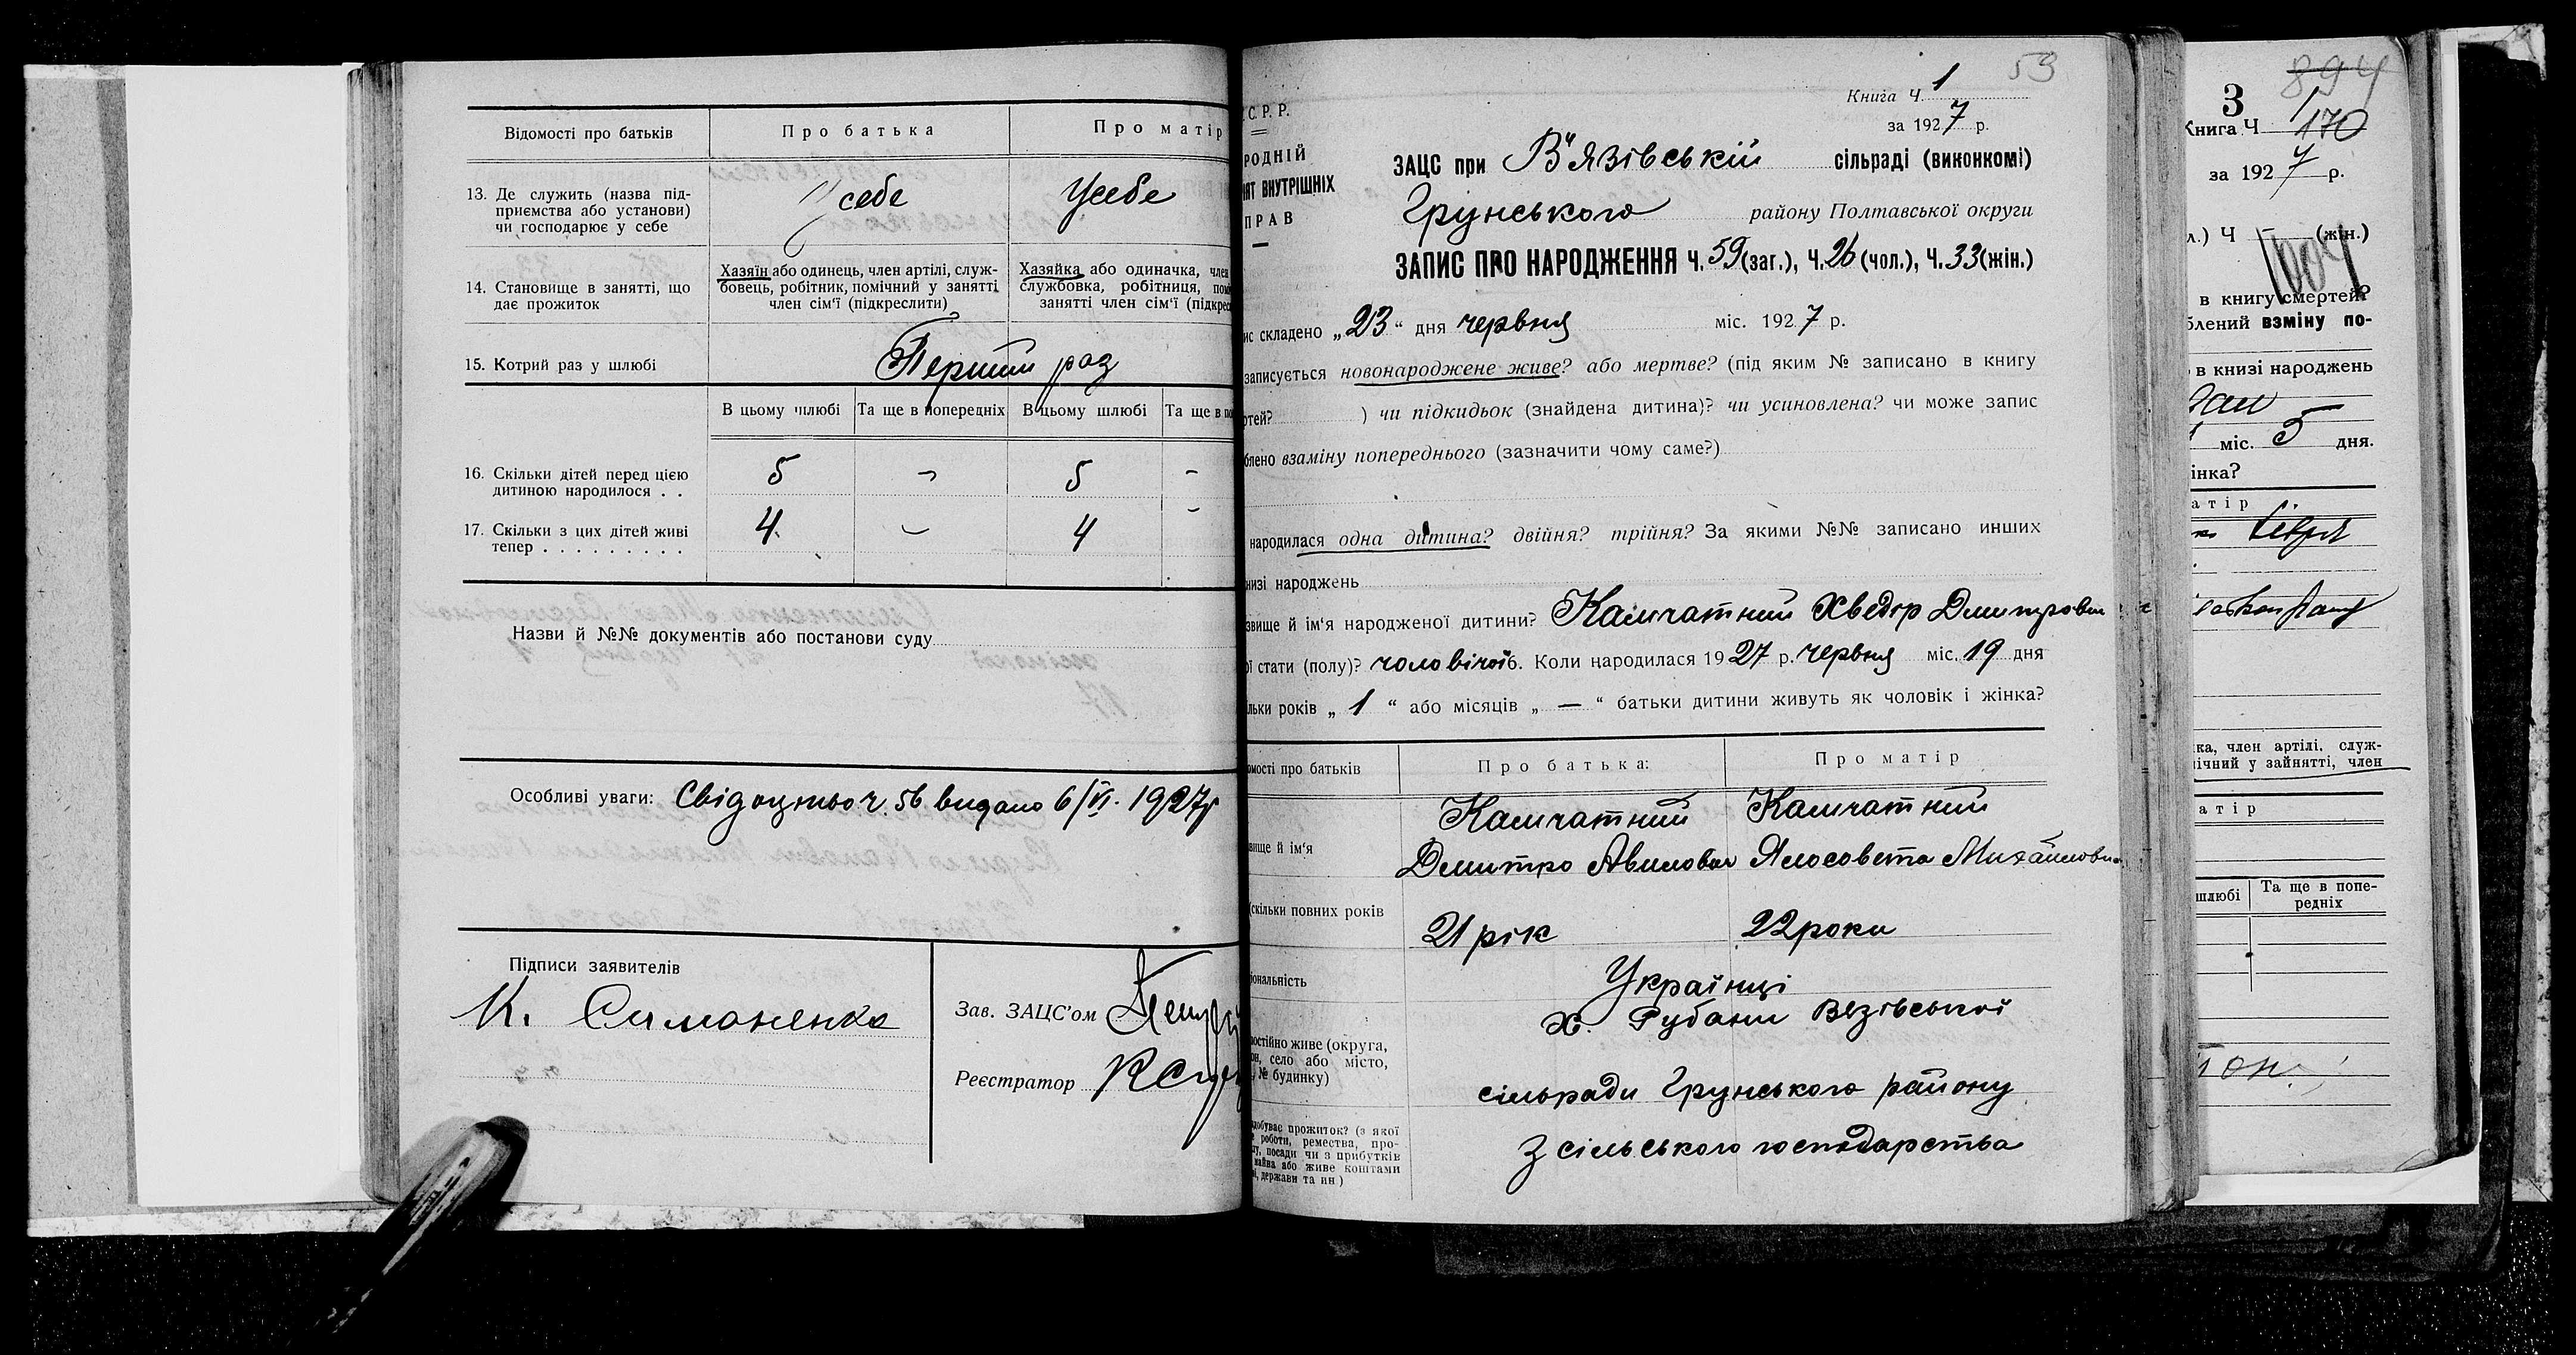 Відомості про батьків
Про батька
Про матір
13. Де служить (назва під-
приємства або установи)
чи господарює у себе
У себе
Усебе
14. Становище в занятті, що
дає прожиток
Хазяїн або одинець, член артілі, служ-
бовець, робітник, помічний у занятті
член сім'ї (підкреслити)
Хазяйка або одиначка, член
службовка, робітниця,
занятті член сім'ї
15. Котрий раз у шлюбі
Перший раз
В цьому шлюбі Та ще в попередніх В цьому шлюбі Та ще в
16. Скільки дітей перед цією
дитиною народилося . .
5 - 5 -
17. Скільки з цих дітей живі
тепер . . . . . . . . .
4 - 4 -
Назви й №№ документів або постанови суду
Особливі уваги: Свідоцтво ч. 56 видано 6/VI. 1927р
Підписи заявителів
К. Симоненко
Зав. ЗАЦС'ом
Реєстратор
53
Книга Ч. 1
за 1927 р.
С. Р. Р.
ВНУТРІШНІХ
ПРАВ
ЗАЦС при В'язівській сільраді (виконкомі)
Грунського району Полтавської округи
ЗАПИС ПРО НАРОДЖЕННЯ Ч. 59 (заг.), Ч. 26 (чол.), Ч. 33 (жін.)
складено „23“ дня червня міс. 1927 р.
записується новонароджене живе? або мертве? (під яким № записано в книгу
) чи підкидьок (знайдена дитина)? чи усиновлена? чи може запис
взаміну попереднього (зазначити чому саме?)
народилася одна дитина? двійня? трійня? За якими №№ записано инших
народжень
й ім'я народженої дитини? Камчатний Хведір Дмитрович
стати (полу)? чоловічої б. Коли народилася 1927 р. червня міс. 19 дня
років „ 1 “ або місяців „ — “ батьки дитини живуть як чоловік і жінка?
про батьків
Про батька:
Про матір
й ім'я
Камчатний Камчатний
Дмитро Авилович Ялосовета Михайловна
(скільки повних років
21 рік 22 роки
Українці
Х. Рубани Вязівської
живе (округа,
село або місто,
№ будинку)
сільради Грунського району
прожиток? (з якої
роботи, ремества, про-
посади чи з прибутків
або живе коштами
держави та ин)
З сільського господарства
894
3
Книга Ч 1
170
за 1927 р.
Ч (жін.)
в книгу смертей?
взміну по-
в книзі народжень
міс. 5 дня.
член артілі, служ-
у зайнятті, член
шлюбі
Та ще в попе-
редніх